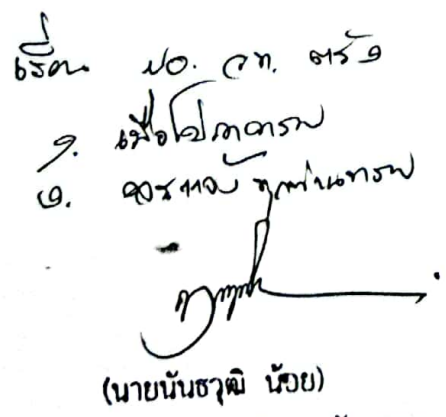 เรียน ผอ. วท. ตรัง
๑. เพื่อโปรดทราบ
๒. ควรแจ้ง ทุกท่านทราบ
(นายนันธวุฒิ น้อย)